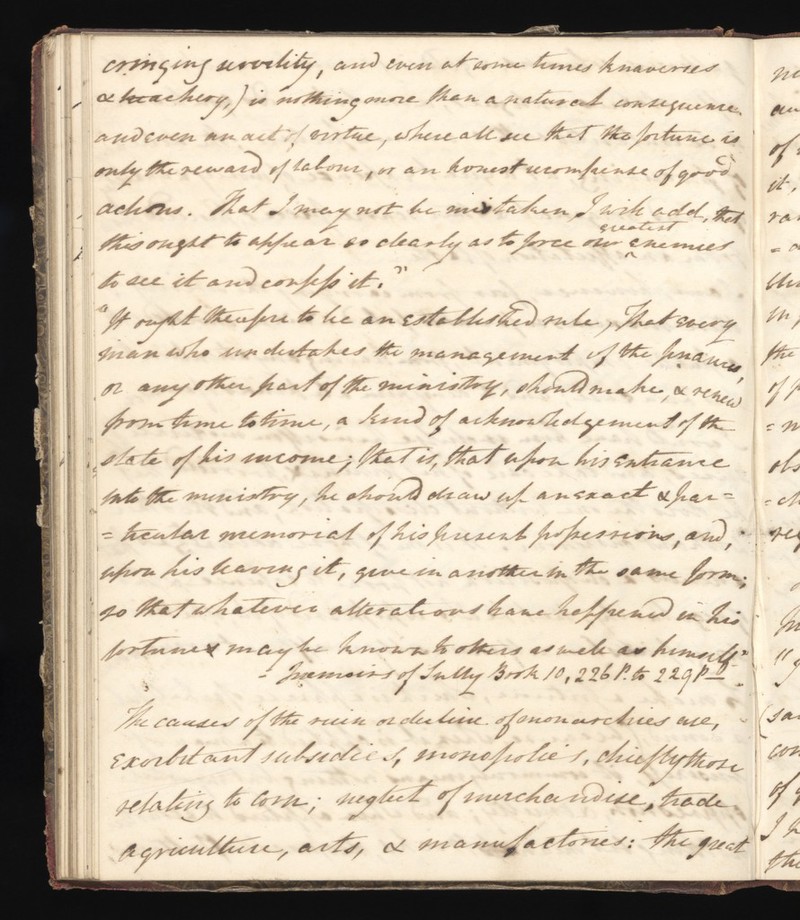 cringing servility, and even at some times knaveries
& treachery,) is nothing more than a natural consequence
and even an act of virtue, where all see that the fortune is
only the reward of labour, or an honest recompense of good
actions. That I may not be mistaken, I will add, that
this ought to appear so clearly as to force our greatest enemies
to see it and confess it."
"It ought therefore to be an established rule, That every
man who undertakes the management of the finances,
or any other part of the ministry, should make, & renew
from time to time, a kind of acknowledgement of the
state of his income; that is, that upon his entrance
into the ministry, he should draw up an exact & par=
=ticular memorial of his present possessions, and,
upon his leaving it, give in another in the same form;
so that whatever alterations have happened in his
fortune may be known to others as well as himself"
- Memoirs of Sully Book 10, 226 P. to 229 P
The causes of the ruin or decline of monarchies are,
exorbitant subsidies, monopolies, chiefly those
relating to corn; neglect of merchandise, trade
agriculture, arts, & manufactories: the great